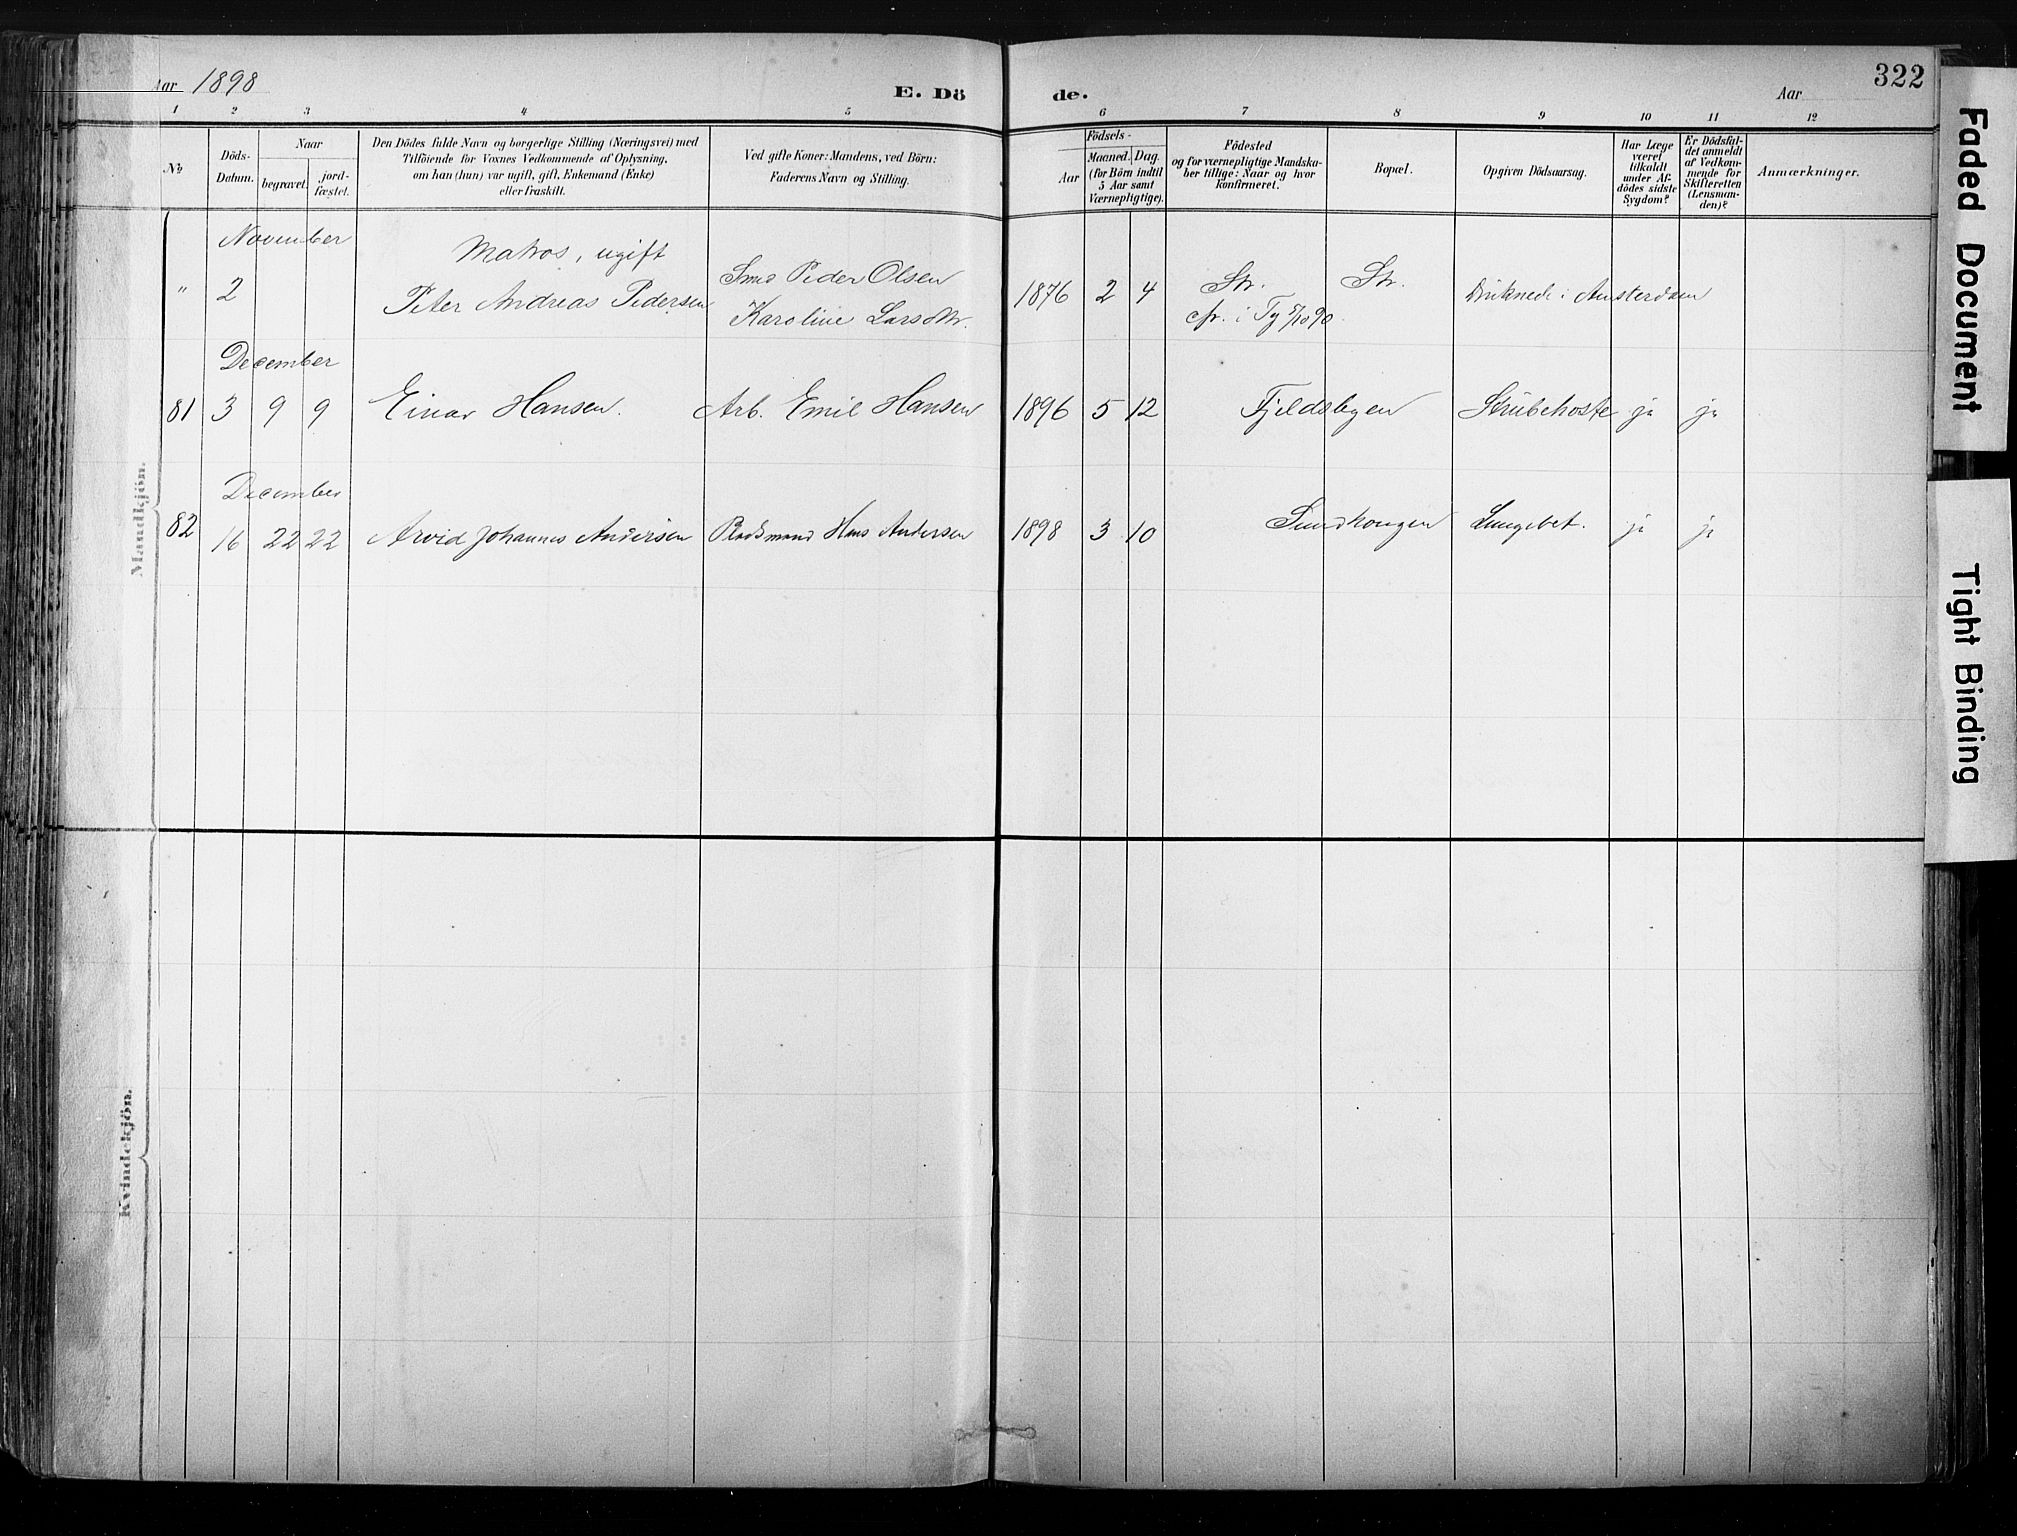 Aar 1898
E. Dö de.
Aar
322
1 2 3 4 5 6 7 8 9 10 11 12
No
Döds-Datum.
Naar
begravet.
jord-fæstet.
Den Dödes fulde Navn og borgerlige Stilling (Næringsvei) med
Tilföiende for Voxnes Vedkommende af Oplysning,
om han (hun) var ugift, gift, Enkemand (Enke)
eller fraskilt.
Ved gifte Koner: Mandens, ved Börn:
Faderens Navn og Stilling.
Födsels-
Aar
Maaned. Dag.
(for Börn indtil
5 Aar samt
Værnepligtige).
Födested
og for værnepligtige Mandska-
ber tillige: Naar og hvor
konfirmeret.
Bopæl.
Opgiven Dödsaarsag.
Har Læge
været
tilkaldt
under Af-
dödes sidste
Sygdom?
Er Dödsfal-
det anmeldt
af Vedkom-
mende for
Skifteretten
(Lensman-
den)?
Anmærkninger.
Mandkjön.
November
Matros, ugift
" 2 Peter Andreas Pedersen
Smed Peder Olsen
Karoline Larsdtr.
1876 2 4 Str. Str. Druknede i Amsterdam
cfr. i 90
December
81 3 9 9 Einar Hansen. Arb. Emil Hansen 1896 5 12 Fjeldsbyen Strubehoste ja ja
December
82 16 22 22 Arvid Johannes Andersen Pladsmand Hans Andersen 1898 3 10 Sundhougen Lungebet. ja ja
Kvindekjön.
Faded Document
Tight Binding